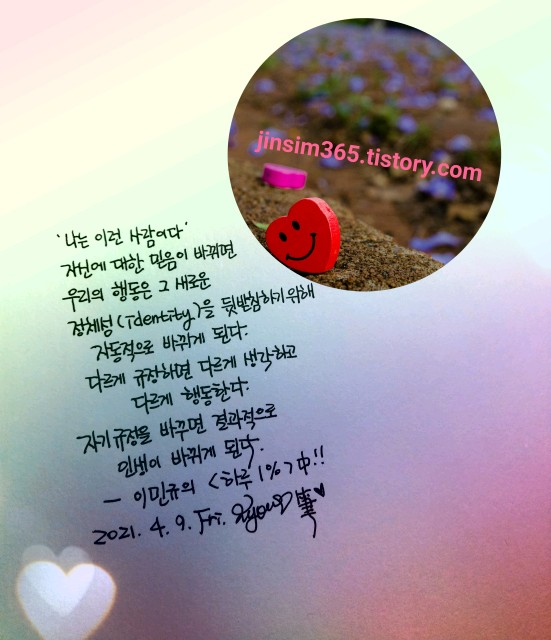 jinsim365.tistory.com
'나는 이런 사람이다'
자신에 대한 믿음이 바뀌면
우리의 행동은 그 새로운
정체성(identity)을 뒷받침하기 위해
자동적으로 바뀌게 된다.
다르게 규정하면 다르게 생각하고
다르게 행동한다.
자기규정을 바꾸면 결과적으로
인생이 바뀌게 된다.
- 이민규의 <하루 1%> 中!!
2021. 4. 9. Fri. 筆♥